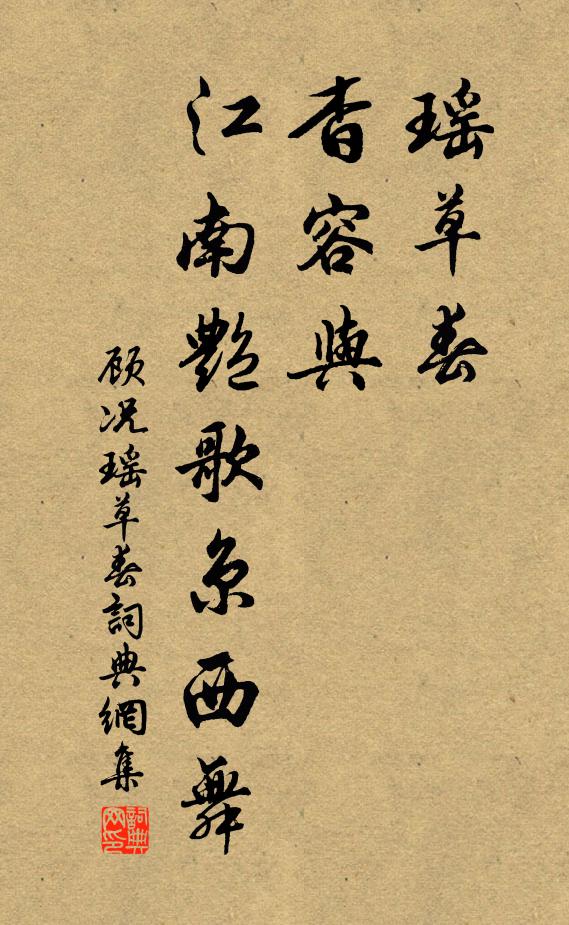 瑶草春
杳容與
江南艷歌京西舞
顾况瑶草春詞典網集
詞典网印